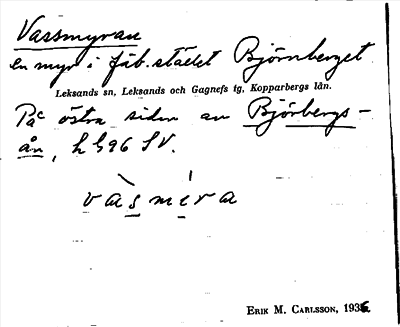 Vassmyran
en myr i fäb.stället Björnberget
Leksands sn, Leksands och Gagnefs tg, Kopparbergs län.
På östra sidan av Björbergs-
ån, h 596 SV.
vàsmíra
ERIK M. CARLSSON, 1936.